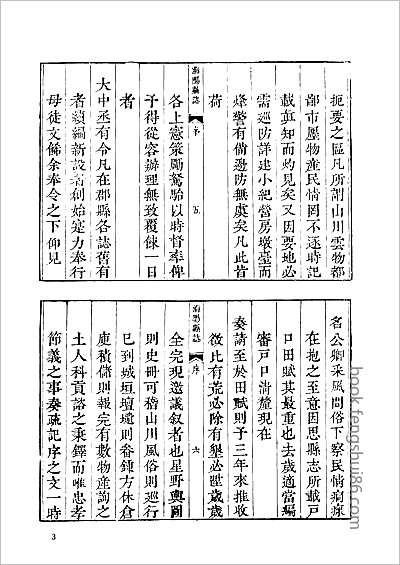 扼要之區凡所謂山川雲物都
鄙市廛物產民情罔不逐時記
載真知而灼見矣又因要地必
需巡防詳建小紀營房墩臺而
烽警有備邊防無虞矣凡此皆
荷
各上憲策勵駑駘以時督率俾
予得從容辦理無致覆餗一日
者
大中丞有令凡在郡縣各誌舊有
者續編新設者創始寔力奉行
母徒文餙余奉令之下仰見
縣誌
序
五
名公卿采風問俗下察民情痌瘝
在抱之至意因思縣志所載戶
口田賦其最重也去歲適當編
審戶口清釐現在
奏請至於田賦則于三年來推收
徵比有荒必除有墾必陞歲歲
全完現邀議敘者也星野輿圖
則史冊可稽山川風俗則巡行
已到城垣壇遆則番鍾方休倉
庾積儲則報完有數物產詢之
土人科貢諮之乘鐸而唯忠孝
節義之事奏疏記序之文一時
縣誌
序
六
3
book.fengshui86.com